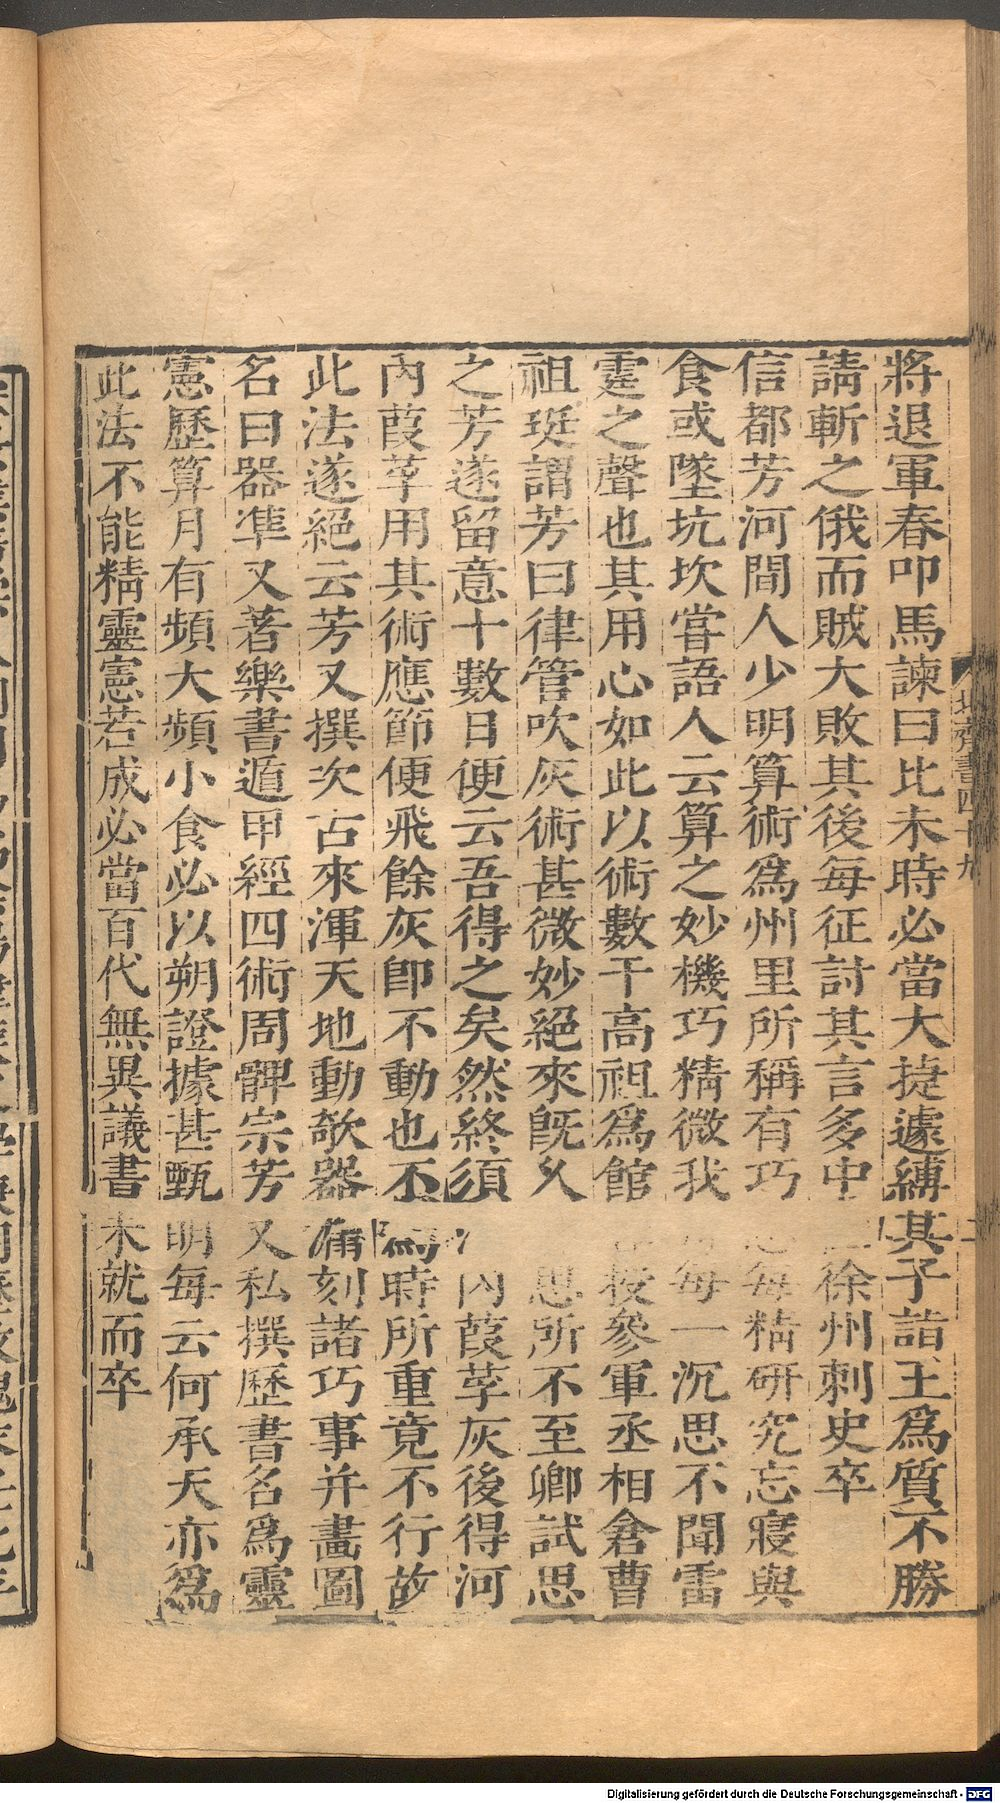 北齊書四十九
二
將退軍春叩馬諫曰比未時必當大捷遽縛其子詣王爲質不勝
請斬之俄而賊大敗其後每征討其言多中徐州刺史卒
信都芳河間人少明算術爲州里所稱有巧每精研究忘寢與
食或墜坑坎嘗語人云算之妙機巧精微我每一沉思不聞雷
霆之聲也其用心如此以術數干高祖爲館授參軍丞相倉曹
祖珽謂芳曰律管吹灰術甚微妙絕來旣久思所不至卿試思
之芳遂留意十數日便云吾得之矣然終須內葭莩灰後得河
內葭莩用其術應節便飛餘灰卽不動也不爲時所重竟不行故
此法遂絕云芳又撰次古來渾天地動欹器漏刻諸巧事并畫圖
名曰器準又著樂書遁甲經四術周髀宗芳又私撰歷書名爲靈
憲歷算月有頻大頻小食必以朔證據甚甄明每云何承天亦爲
此法不能精靈憲若成必當百代無異議書未就而卒
Digitalisierung gefördert durch die Deutsche Forschungsgemeinschaft - DFG